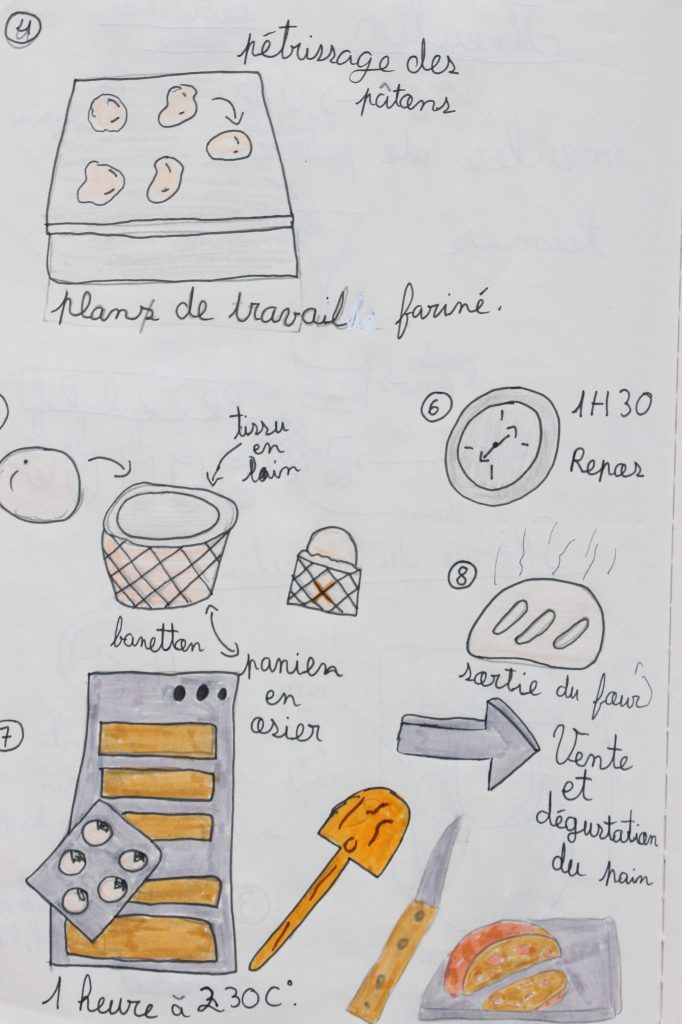 4
pétrissage des
pâtons
plans de travail fariné.
tissu
en
lain
banetton
panien
en
osier
6
1H30
Repos
8
sortie du four
7
1 heure à 230C°.
Vente
et
dégurtation
du pain